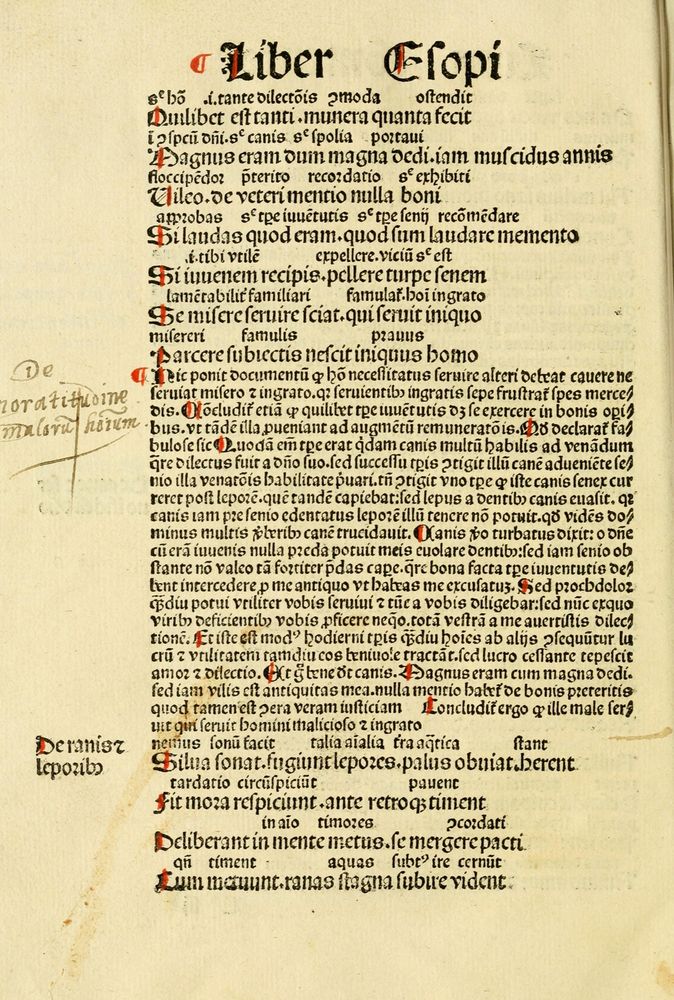 ¶ Liber Esopi
sᵉ hõ .i. tante dilectõis ꝛmoda ostendit
Quilibet est tanti .munera quanta fecit
ĩ ꝓspcũ dñi. sᵉ canis sᵉ spolia portaui
Magnus eram dum magna dedi .iam muscidus annis
floccipẽdor p̃terito recordatio sᵉ exhibiti
Vileo .de veteri mentio nulla boni
approbas sᵉ tꝑe iuuẽtutis sᵉ tꝑe senij recõmẽdare
Si laudas quod eram .quod sum laudare memento
.i. tibi vtilẽ expellere. viciũ sᵉ est
Si iuuenem recipis .pellere turpe senem
lamẽtabilit᷑ familiari famulat᷑. hoĩ ingrato
Se misere seruire sciat .qui seruit iniquo
misereri famulis prauus
Parcere subiectis nescit iniquus homo
De
ingratitudine
malorum hominum
¶ Hic ponit documentũ ꝙ hõ necessitatus seruire alteri debeat cauere ne
seruiat misero ⁊ ingrato. qꝛ seruientibꝰ ingratis sepe frustrat᷑ spes merce⸗
dis. Cõcludit᷑ etiã ꝙ quilibet tꝑe iuuẽtutis dꝫ se exercere in bonis oꝑi⸗
bus. vt tãdẽ illa ꝓueniant ad augmẽtũ remuneratõis. Qđ declarat᷑ fa⸗
bulose sic Quodã em̃ tꝑe erat q̃dam canis multũ habilis ad venãdum
q̃re dilectus fuit a dño suo. sed successu tꝑis ꝯtigit illũ canẽ adueniẽte se⸗
nio illa venatõis habilitate p̃uari. tñ ꝯtigit vno tꝑe ꝙ iste canis senex cur
reret post leporẽ. quẽ tandẽ capiebat: sed lepus a dentibꝰ canis euasit. qꝛ
canis iam pre senio edentatus leporẽ illũ tenere nõ potuit. qđ vidẽs do⸗
minus multis ꝟberibꝰ canẽ trucidauit. Canis ꝟo turbatus dixit: o dñe
cũ erã iuuenis nulla preda potuit meis euolare dentibꝰ: sed iam senio ob
stante nõ valeo tã fortiter p̃das caꝑe. q̃re bona facta tꝑe iuuẽtutis de⸗
bent intercedere ꝓ me antiquo vt habeas me excusatuꝫ. Sed prochdolor
q̃ᵭiu potui vtiliter vobis seruiui ⁊ tũc a vobis diligebar: sed nũc exquo
viribꝰ deficientibꝰ vobis ꝓficere neq̃o. totã vestrã a me auertistis dilec⸗
tionẽ. Et iste est modꝰ hodierni tꝑis q̃ᵭiu hoĩes ab alijs ꝯsequũtur lu
crũ ⁊ vtilitatem tamdiu eos beniuole tractãt. sed lucro cessante tepescit
amor ⁊ dilectio. Et g̊ bene dr̃t canis. Magnus eram cum magna dedi.
sed iam vilis est antiquitas mea. nulla mentio habet᷑ de bonis preteritis
quod tamen est ꝯtra veram iusticiam Concludit᷑ ergo ꝙ ille male ser⸗
uit qui seruit homini malicioso ⁊ ingrato
De ranis ⁊
leporibꝰ
nemus sonũ facit talia aĩalia tr̃a aq̃tica stant
Silua sonat .fugiunt lepores .palus obuiat .herent
tardatio circũspiciũt pauent
Fit mora respiciunt .ante retroqꝫ timent
in aĩo timores ꝯcordati
Deliberant in mente metus .se mergere pacti
qñ timent aquas subtꝰ ire cernũt
Cum metuunt .ranas stagna subire vident